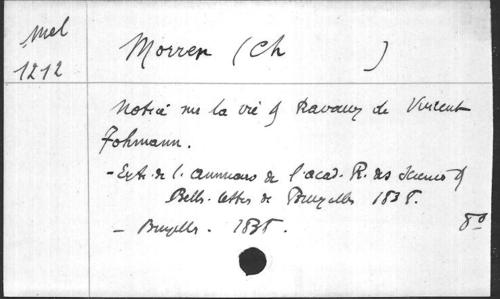 Mel
1212
Morren (Ch )
Notice sur la vie & travaux de Vincent
Fohmann.
- Extr. de l'annuaire de l'acad. R. des Sciences &
Belles-lettres de Bruxelles 1838.
- Bruxelles. 1838. 8°